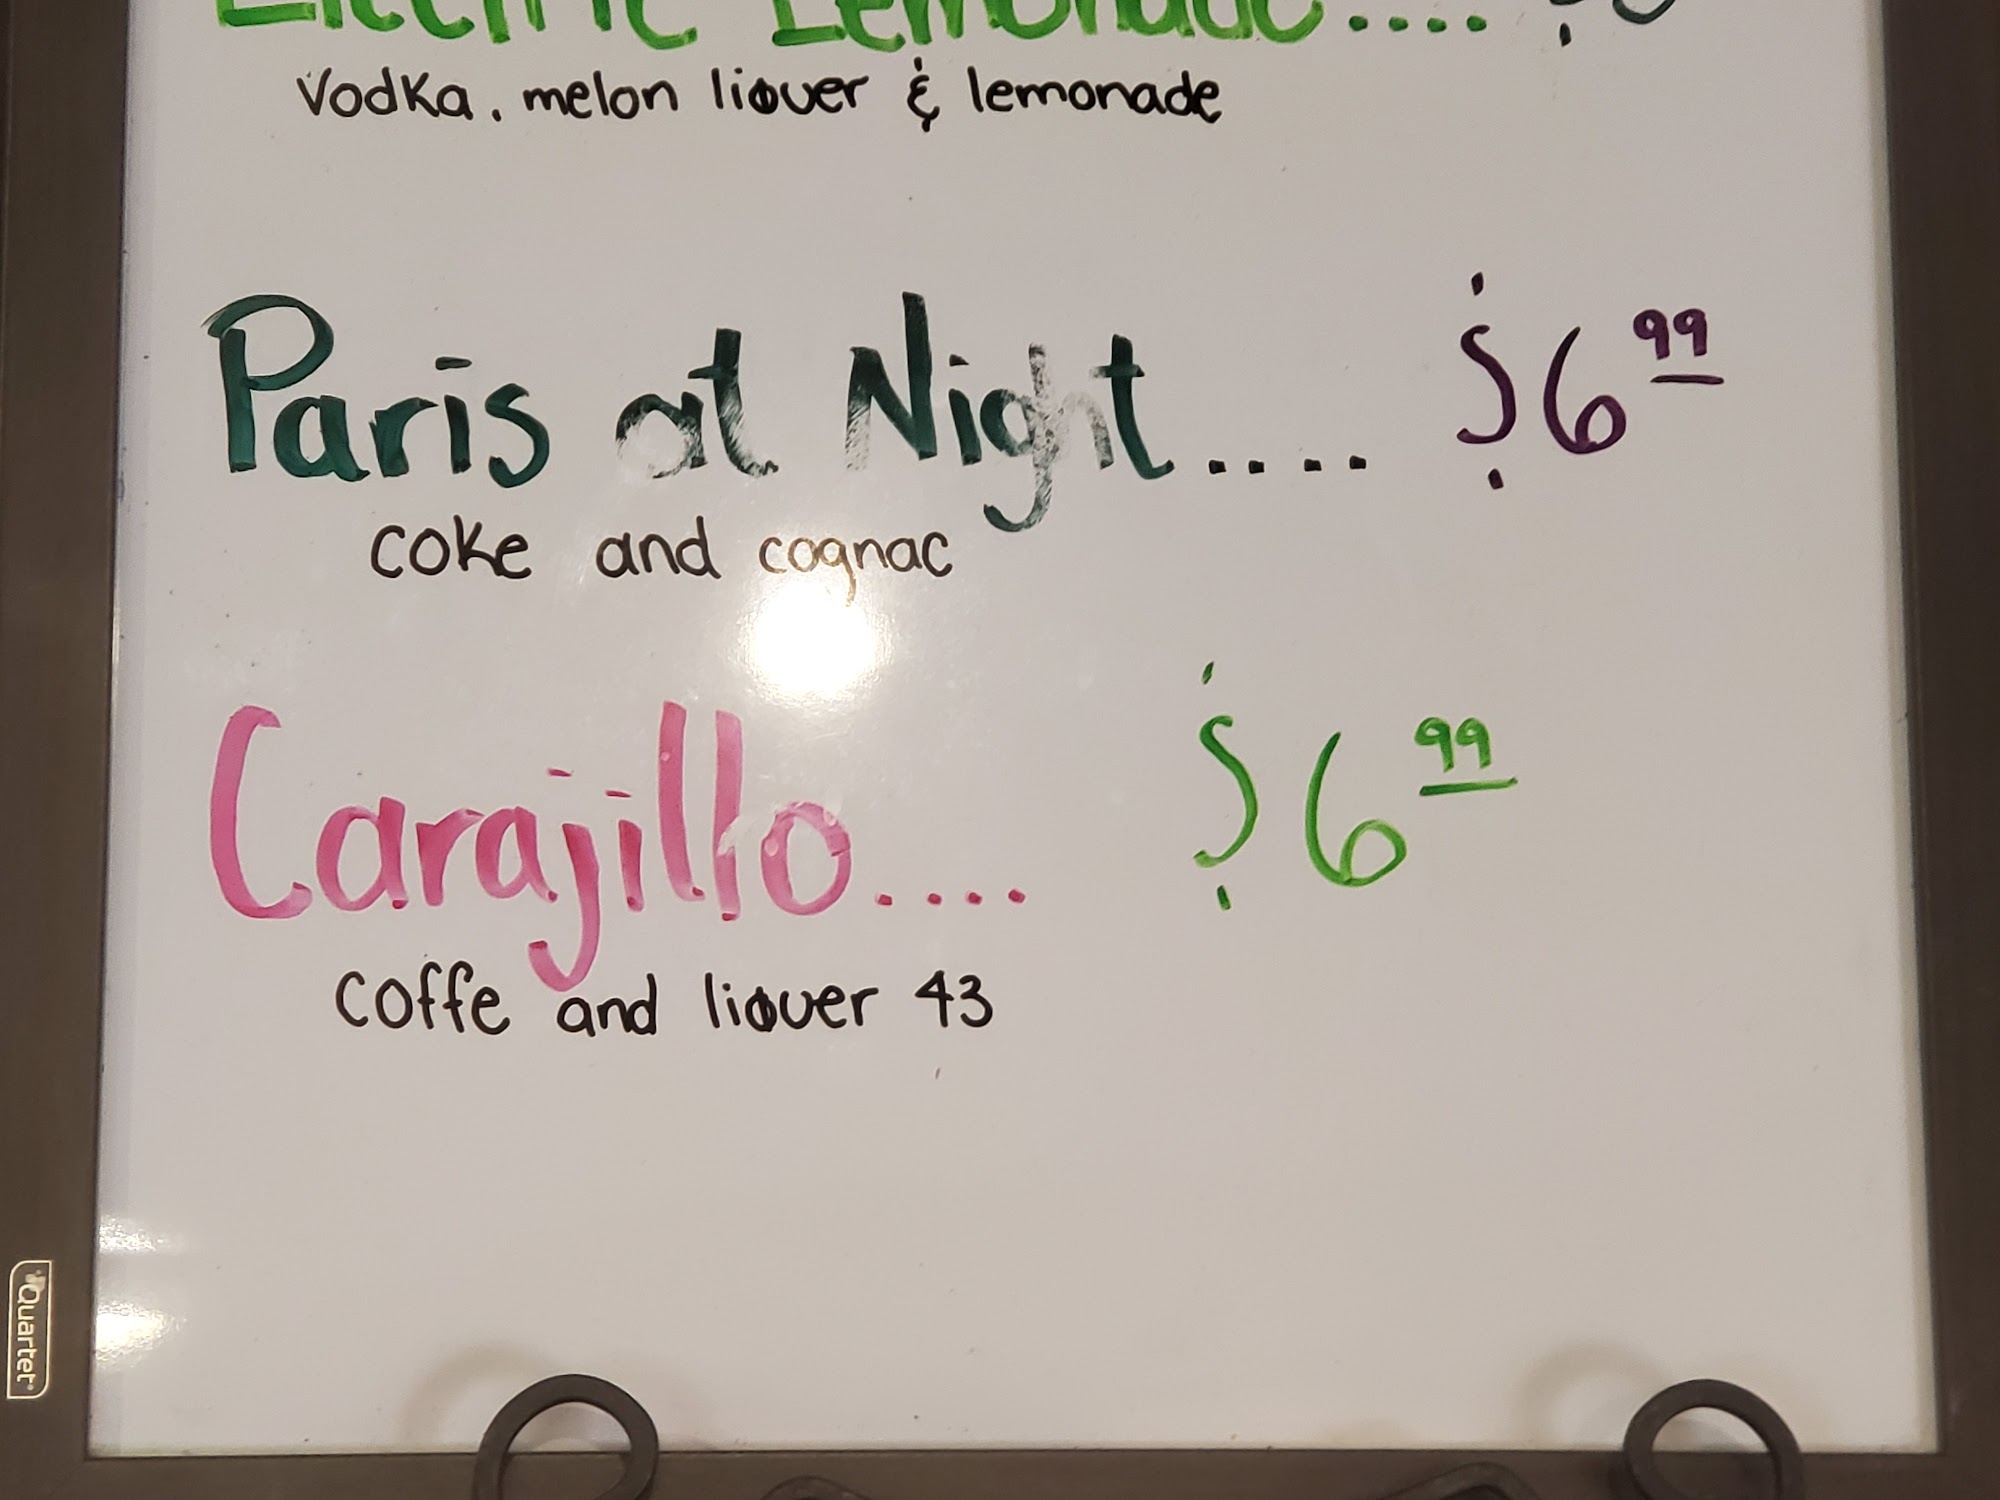 Electric Lemonade....
Vodka, melon liquer & lemonade
Paris at Night.... $6 99
coke and cognac
Carajillo.... $6 99
coffe and liquer 43
Quartet